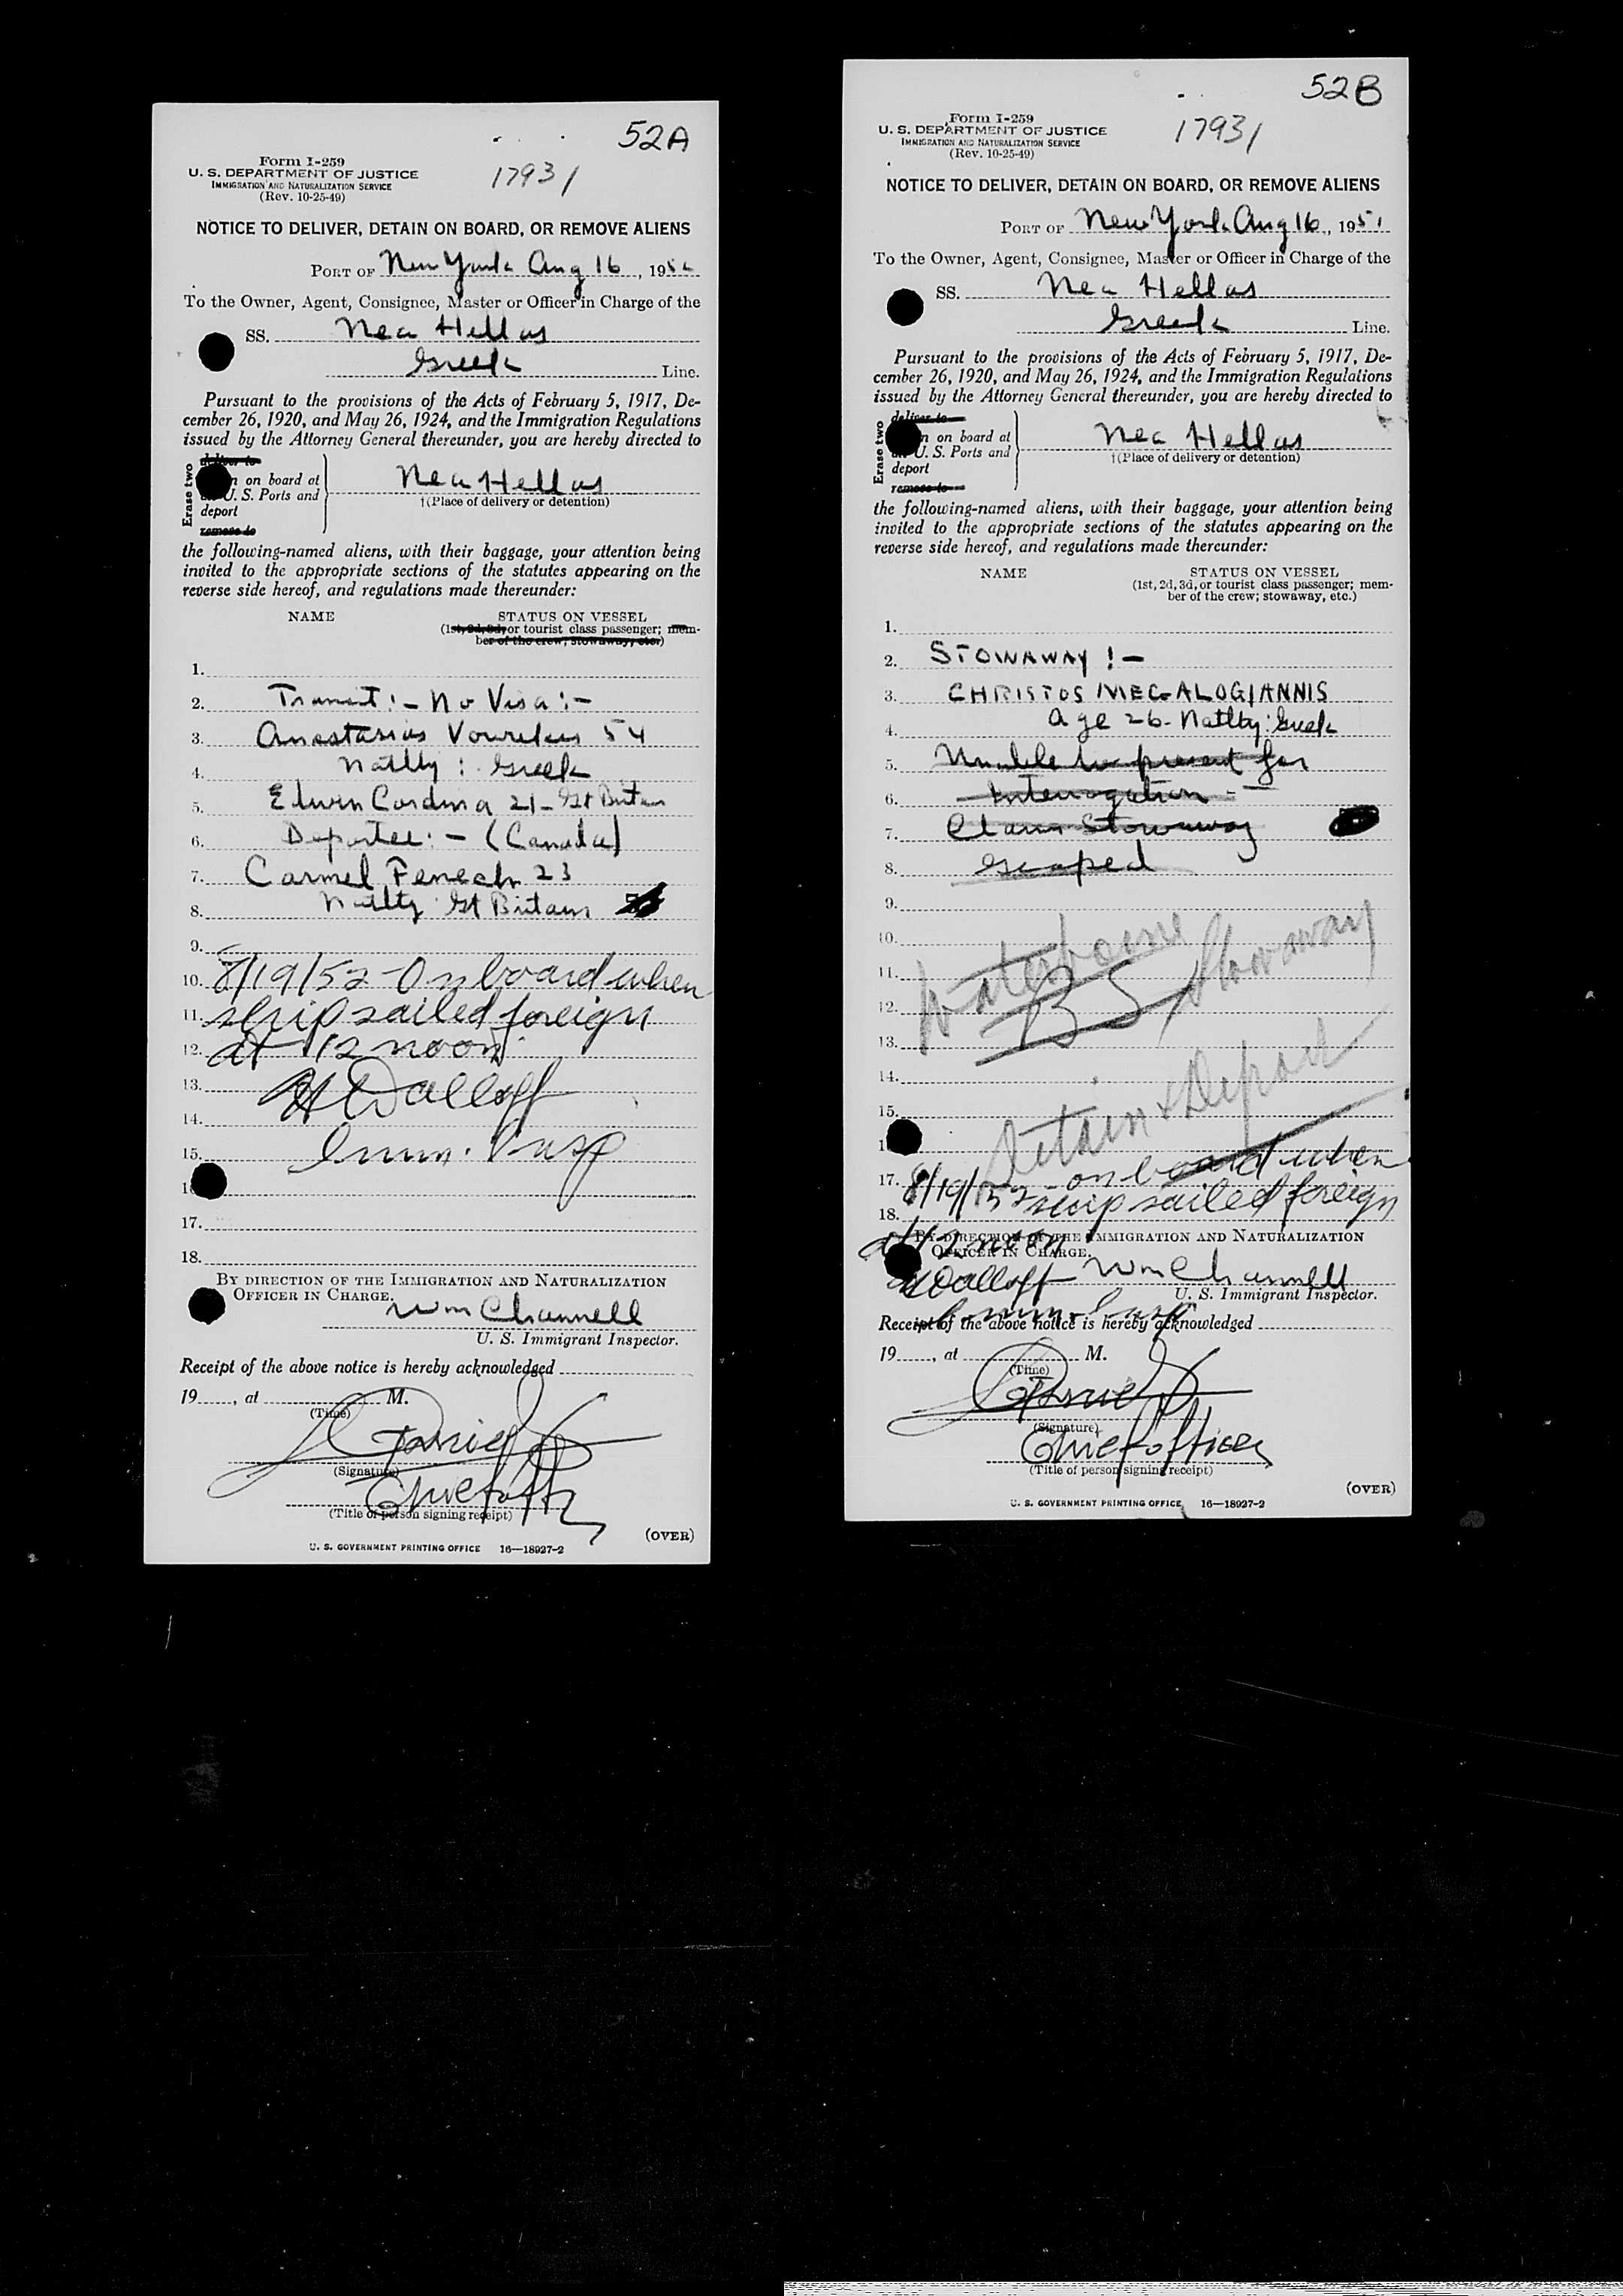 52A
Form I-259
U. S. DEPARTMENT OF JUSTICE
IMMIGRATION AND NATURALIZATION SERVICE
(Rev. 10-25-49)
17931
NOTICE TO DELIVER, DETAIN ON BOARD, OR REMOVE ALIENS
PORT OF New York Aug 16, 195
To the Owner, Agent, Consignee, Master or Officer in Charge of the
SS. Nea Hellas
Greek Line.
Pursuant to the provisions of the Acts of February 5, 1917, De-
cember 26, 1920, and May 26, 1924, and the Immigration Regulations
issued by the Attorney General thereunder, you are hereby directed to
Erase two
deliver to
n on board at
U. S. Ports and
deport
remove to
Nea Hellas
†(Place of delivery or detention)
the following-named aliens, with their baggage, your attention being
invited to the appropriate sections of the statutes appearing on the
reverse side hereof, and regulations made thereunder:
NAME STATUS ON VESSEL
(1st, 2d, 3d, or tourist class passenger; mem-
ber of the crew; stowaway, etc.)
1.
2. Transit :- No Visa :-
3. Anastasias 54
4. Natlty : Greek
5. Edwin Cordina 21 - Gt Britain
6. Deportee :- (Canada)
7. Carmel Fenech 23
8. Natlty Gt Britain
9.
10. 8/19/52 - On board when
11. ship sailed foreign
12. at 12 noon
13.
14.
15. Imm. Insp
16
17.
18.
BY DIRECTION OF THE IMMIGRATION AND NATURALIZATION
OFFICER IN CHARGE.
Wm Channell
U. S. Immigrant Inspector.
Receipt of the above notice is hereby acknowledged
19......, at M.
(Time)
(Signature)
Chief Offr
(Title of person signing receipt)
(OVER)
U. S. GOVERNMENT PRINTING OFFICE 16—18927-2
52B
Form I-259
U. S. DEPARTMENT OF JUSTICE
IMMIGRATION AND NATURALIZATION SERVICE
(Rev. 10-25-49)
17931
NOTICE TO DELIVER, DETAIN ON BOARD, OR REMOVE ALIENS
PORT OF New York Aug 16, 195
To the Owner, Agent, Consignee, Master or Officer in Charge of the
SS. Nea Hellas
Greek Line.
Pursuant to the provisions of the Acts of February 5, 1917, De-
cember 26, 1920, and May 26, 1924, and the Immigration Regulations
issued by the Attorney General thereunder, you are hereby directed to
Erase two
deliver to
n on board at
U. S. Ports and
deport
remove to
Nea Hellas
†(Place of delivery or detention)
the following-named aliens, with their baggage, your attention being
invited to the appropriate sections of the statutes appearing on the
reverse side hereof, and regulations made thereunder:
NAME STATUS ON VESSEL
(1st, 2d, 3d, or tourist class passenger; mem-
ber of the crew; stowaway, etc.)
1.
2. STOWAWAY ! -
3. CHRISTOS MEGALOGIANNIS
4. Age 26 - Natlty : Greek
5. Unable to present for
6. Interrogation -
7. Claims Stowaway
8. escaped
9.
10.
11. Stowaway
12.
13.
14.
15. Detain & Deport
1
17. 8/19/52 - on board when
18. ship sailed foreign
at 12 noon
BY DIRECTION OF THE IMMIGRATION AND NATURALIZATION
OFFICER IN CHARGE.
Wm Channell
U. S. Immigrant Inspector.
Imm. Insp
Receipt of the above notice is hereby acknowledged
19......, at M.
(Time)
(Signature)
Chief officer
(Title of person signing receipt)
(OVER)
U. S. GOVERNMENT PRINTING OFFICE 16—18927-2